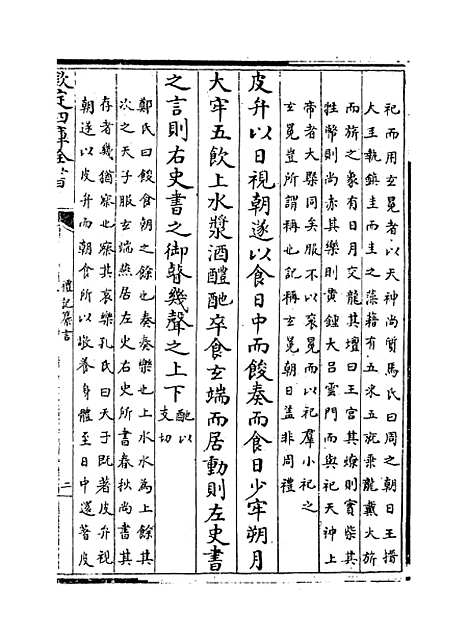 祀而用玄冕者以天神尚質馬氏曰周之朝日王搢
大圭執鎮圭而圭之藻藉有五采五就乘龍戴大旂
而旂之象有日月交龍其壇曰王宮其燎則實柴其
牲幣則尚赤其樂則黃鍾大呂雲門而與祀天神上
帝者大槩同矣服不以衮冕而以祀羣小祀之
玄冕豈所謂稱也記稱玄冕朝日盖非周禮
皮弁以日視朝遂以食日中而餕奏而食日少牢朔月
大牢五飲上水漿酒醴酏卒食玄端而居動則左史書
之言則右史書之御瞽幾聲之上下
酏以
支切
鄭氏曰餕食朝之餘也奏奏樂也上水水為上餘其
次之天子服玄端燕居左史右史所書春秋尚書其
存者幾猶察也察其哀樂孔氏曰天子既著皮弁視
朝遂以皮弁而朝食所以敬養身體至日中還著皮
欽定四庫全書
禮記纂言
二